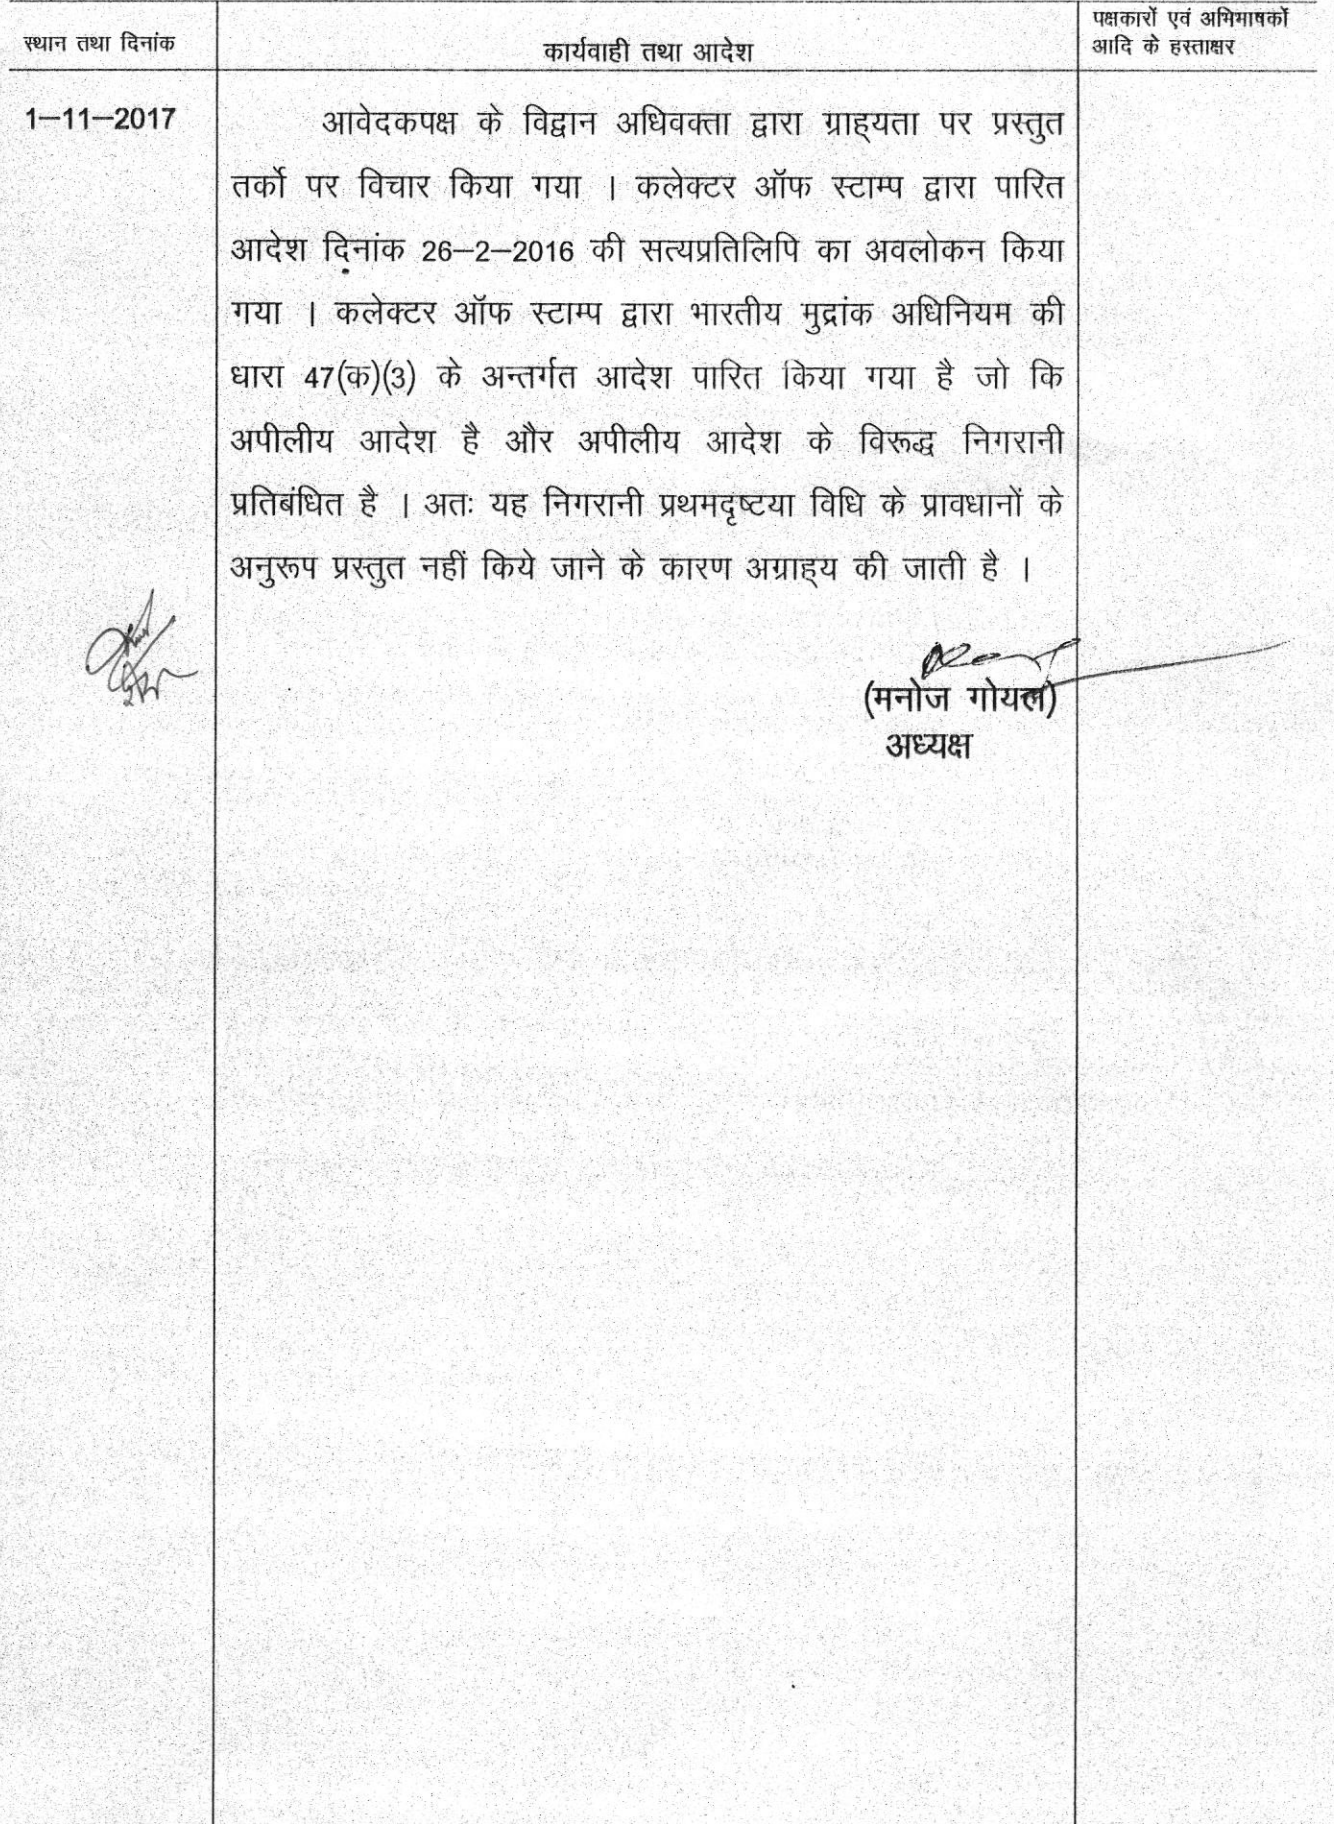 स्थान तथा दिनांक
कार्यवाही तथा आदेश
पक्षकारों एवं अभिभाषकों
आदि के हस्ताक्षर
1–11–2017
आवेदकपक्ष के विद्वान अधिवक्ता द्वारा ग्राह्यता पर प्रस्तुत
तर्को पर विचार किया गया । कलेक्टर ऑफ स्टाम्प द्वारा पारित
आदेश दिनांक 26–2–2016 की सत्यप्रतिलिपि का अवलोकन किया
गया । कलेक्टर ऑफ स्टाम्प द्वारा भारतीय मुद्रांक अधिनियम की
धारा 47(क)(3) के अन्तर्गत आदेश पारित किया गया है जो कि
अपीलीय आदेश है और अपीलीय आदेश के विरूद्ध निगरानी
प्रतिबंधित है । अतः यह निगरानी प्रथमदृष्टया विधि के प्रावधानों के
अनुरूप प्रस्तुत नहीं किये जाने के कारण अग्राह्य की जाती है ।
(मनोज गोयल)
अध्यक्ष